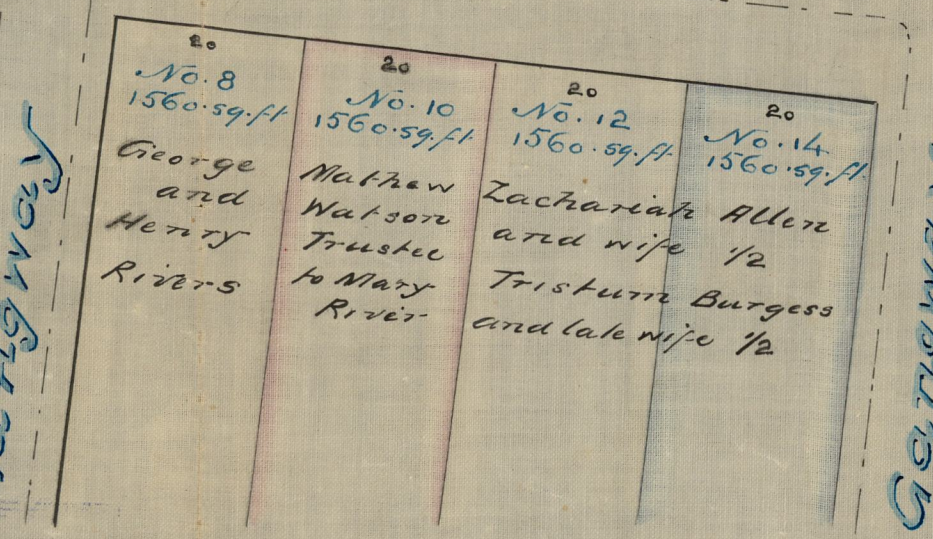 20
No. 8
1560.sq.ft
George
and
Henry
Rivers
20
No. 10
1560.sq.ft
Mathew
Watson
Trustee
to Mary
River
20
No. 12
1560.sq.ft
20
No. 14
1560.sq.ft
Zachariah Allen
and wife 1/2
Tristum Burgess
and late wife 1/2